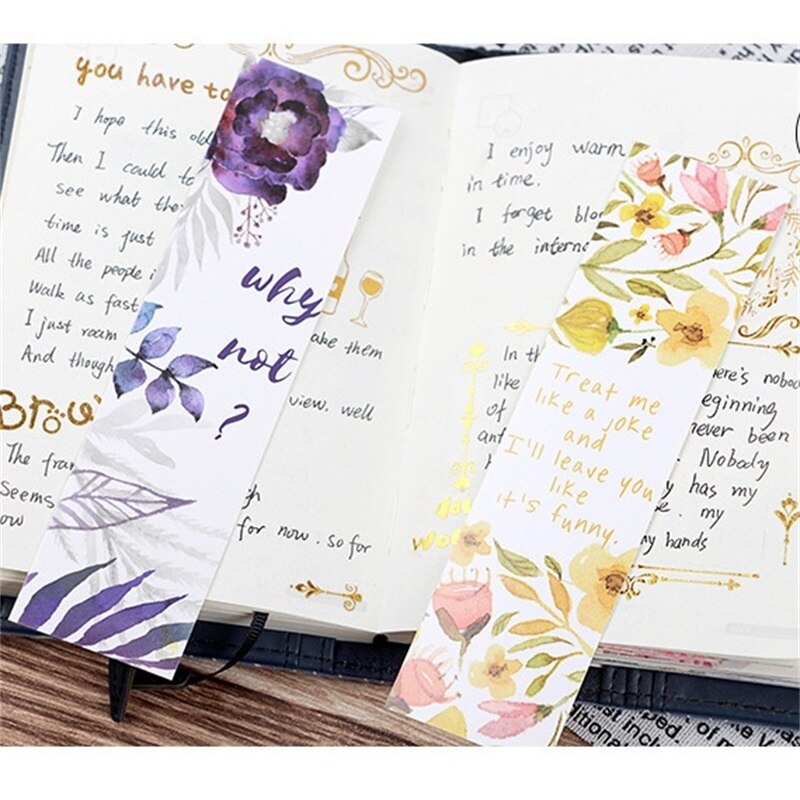 you have to
I hope this old
Then I could to
see what the
time is just
All the people i
Walk as fast
I just roam
And though
ake them
view. well
Brow
The frar
Seems
ow
gh
for now. so for
why
not
?
I enjoy warm
in time.
I forget blo
in the interne
In th
like
of
ant
Treat me
like a joke
and
I'll leave you
like
it's funny.
here's nobo
eginning
never been
Nobody
y has my
e. my
my hands